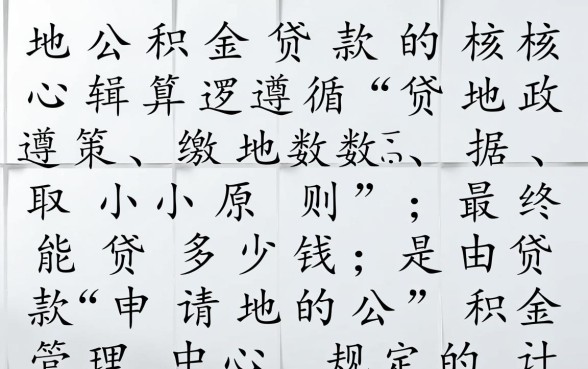 地公积金贷款的核核
心辑算逻遵循“贷地政
遵策、缴地数数、据、
取小小原则”；最终
能贷多少钱；是由贷
款“申请地的公”积金
管理中心规定的计